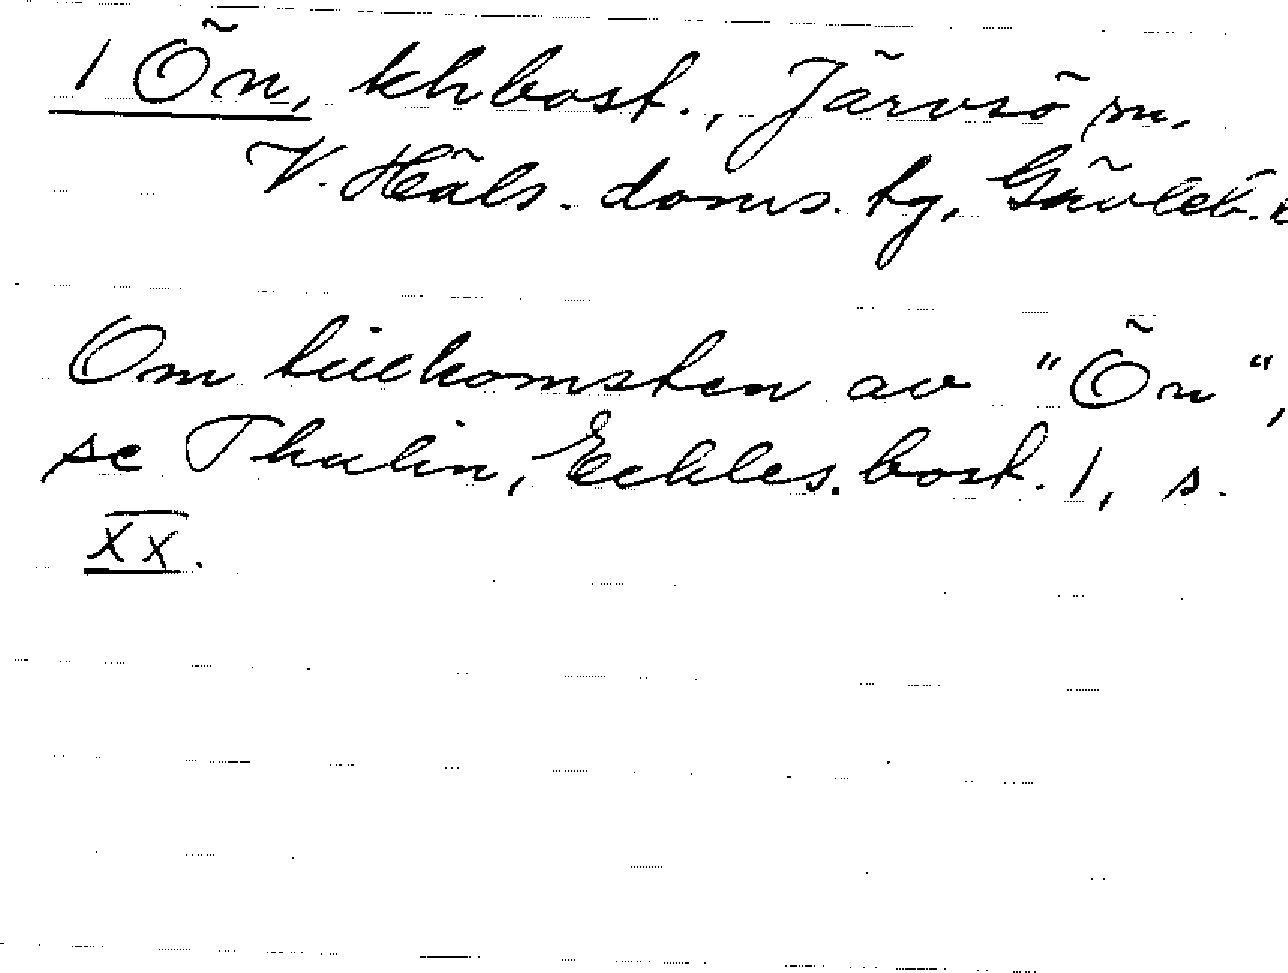 1 Ön, khbost., Järvsö sn.
V. Häls. doms. tg, Gävleb.
Om tillkomsten av "Ön",
se Thulin, Eckles. bost. 1, s.
XX.